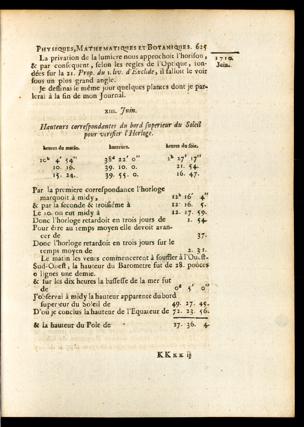 PHYSIQUES, MATHEMATIQUES ET BOTANIQUES. 625
La privation de la lumiere nous approchoit l'horison,
& par consequent, selon les regles de l'Optique, fon-
dées sur la 21. Prop. du 1. liv. d'Euclide, il falloit le voir
sous un plus grand angle.
1710.
Juin.
Je dessinai le même jour quelques plantes dont je par-
lerai à la fin de mon Journal.
XIII. Juin.
Hauteurs correspondantes du bord superieur du Soleil
pour verifier l'Horloge.
heures du matin. hauteurs. heures du soir.
10h 4' 54" 38d 22' 0" 1h 27' 17"
10. 16. 39. 10. 0. 21. 54.
15. 24. 39. 55. 0. 16. 47.
Par la premiere correspondance l'horloge
marquoit à midy, 12h 16' 4"
& par la seconde & troisiéme à 12. 16. 5.
Le 10. on eut midy à 12. 17. 59.
Donc l'horloge retardoit en trois jours de 1. 54.
Pour être au temps moyen elle devoit avan-
cer de 37.
Donc l'horloge retardoit en trois jours sur le
temps moyen de 2. 31.
Le matin les vents commencerent à souffler à l'Ouest-
Sud-Ouest, la hauteur du Barometre fut de 28. pouces
0 lignes une demie.
& sur les dix heures la bassesse de la mer fut
de 0d 5' 0"
J'observai à midy la hauteur apparente du bord
superieur du Soleil de 49. 27. 45.
D'où je conclus la hauteur de l'Equateur de 72. 23. 56.
& la hauteur du Pole de 17. 36. 4.
KKxx ij